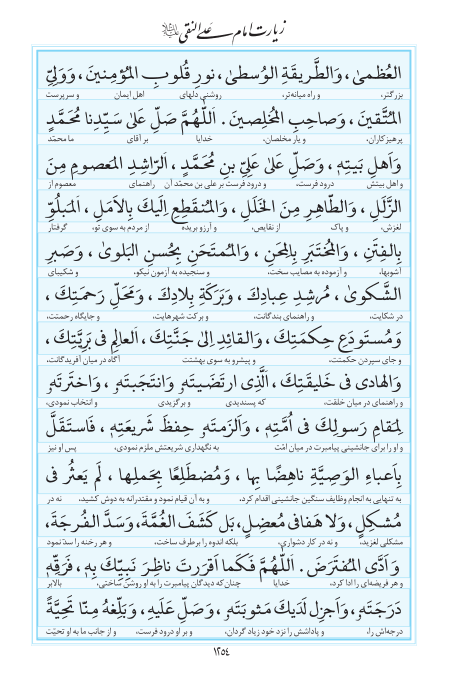 زیارت امام علی النقی علیه‌السلام
العُظمىٰ، وَالطَّريقَةِ الوُسطىٰ، نورِ قُلوبِ المُؤمِنينَ، وَوَلِيِّ
بزرگتر، و راه میانه‌تر، روشنی دلهای اهل ایمان و سرپرست
المُتَّقينَ، وَصاحِبِ المُخلِصينَ. اَللّٰهُمَّ صَلِّ عَلىٰ سَيِّدِنا مُحَمَّدٍ
پرهیزکاران، و یار مخلصان، خدایا بر آقای ما محمّد
وَاَهلِ بَيتِهِ، وَصَلِّ عَلىٰ عَلِيِّ بنِ مُحَمَّدٍ، اَلرّاشِدِ المَعصومِ مِنَ
و اهل بیتش درود فرست، و درود فرست بر علی بن محمّد آن راهنمای معصوم از
الزَّلَلِ، وَالطّاهِرِ مِنَ الخَلَلِ، وَالمُنقَطِعِ اِلَيكَ بِالاَمَلِ، اَلمَبلُوِّ
لغزش، و پاک از نقایص، و آرزو بریده از مردم به سوی تو، گرفتار
بِالفِتَنِ، وَالمُختَبَرِ بِالمِحَنِ، وَالمُمتَحَنِ بِحُسنِ البَلوىٰ، وَصَبرِ
آشوبها، و آزموده به مصایب سخت، و سنجیده به آزمون نیکو، و شکیبای
الشَّكوىٰ، مُرشِدِ عِبادِكَ، وَبَرَكَةِ بِلادِكَ، وَمَحَلِّ رَحمَتِكَ،
در شکایت، و راهنمای بندگانت، و برکت شهرهایت، و جایگاه رحمتت،
وَمُستَودَعِ حِكمَتِكَ، وَالقائِدِ اِلىٰ جَنَّتِكَ، اَلعالِمِ فى بَرِيَّتِكَ،
و جای سپردن حکمتت، و پیشرو به سوی بهشتت آگاه در میان آفریدگانت،
وَالهادى فى خَليقَتِكَ، اَلَّذِى ارتَضَيتَهُ وَانتَجَبتَهُ، وَاختَرتَهُ
و راهنمای در میان خلقت، که پسندیدی و برگزیدی و انتخاب نمودی،
لِمَقامِ رَسولِكَ فى اُمَّتِهِ، وَاَلزَمتَهُ حِفظَ شَريعَتِهِ، فَاستَقَلَّ
و او را برای جانشینی پیامبرت در میان امّت به نگهداری شریعتش ملزم نمودی، پس او نیز
بِاَعباءِ الوَصِيَّةِ ناهِضًا بِها، وَمُضطَلِعًا بِحَملِها، لَم يَعثُر فى
به تنهایی به انجام وظایف سنگین جانشینی اقدام کرد، و به آن قیام نمود و مقتدرانه به دوش کشید، نه در
مُشكِلٍ، وَلا هَفا فى مُعضِلٍ، بَل كَشَفَ الغُمَّةَ، وَسَدَّ الفُرجَةَ،
مشکلی لغزید، و نه در کار دشواری، بلکه اندوه را برطرف ساخت، و هر رخنه را سد نمود
وَ اَدَّى المُفتَرَضَ. اَللّٰهُمَّ فَكَما اَقرَرتَ ناظِرَ نَبِيِّكَ بِهِ، فَرَقِّهِ
و هر فریضه‌ای را ادا کرد، خدایا چنان‌که دیدگان پیامبرت را به او روشن ساختی، بالابر
دَرَجَتَهُ، وَاَجزِل لَدَيكَ مَثوبَتَهُ، وَصَلِّ عَلَيهِ، وَبَلِّغهُ مِنّا تَحِيَّةً
درجه‌اش را، و پاداشش را نزد خود زیاد گردان، و بر او درود فرست، و از جانب ما به او تحیّت
۱۲۵٤